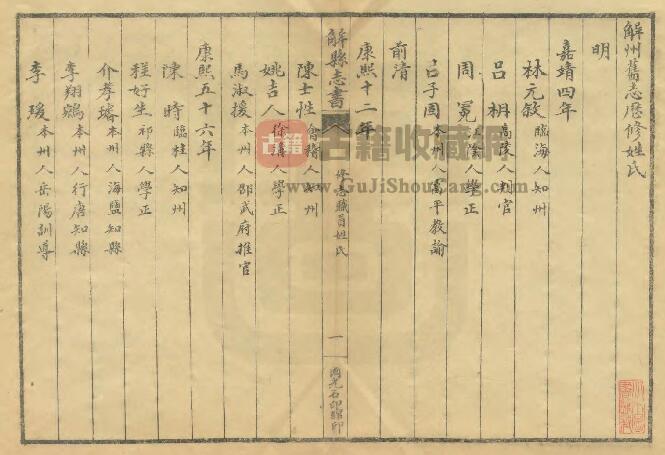 解州舊志歷修姓氏
明
嘉靖四年
林元敘臨海人知州
呂柟高陵人判官
周冕人學正
呂子固本州人平教諭
前清
康熙十二年
解縣志書
修志職員姓氏
一
石印館印
陳士性會稽人知州
姚吉人徐溝人學正
馬淑援本州人邵武府推官
康熙五十六年
陳時臨桂人知州
程好生祁縣人學正
介孝璿本州人海鹽知縣
李翔鵷本州人行唐知縣
李瑗本州人岳陽訓導
古籍收藏网
www.GuJiShouCang.com
古籍